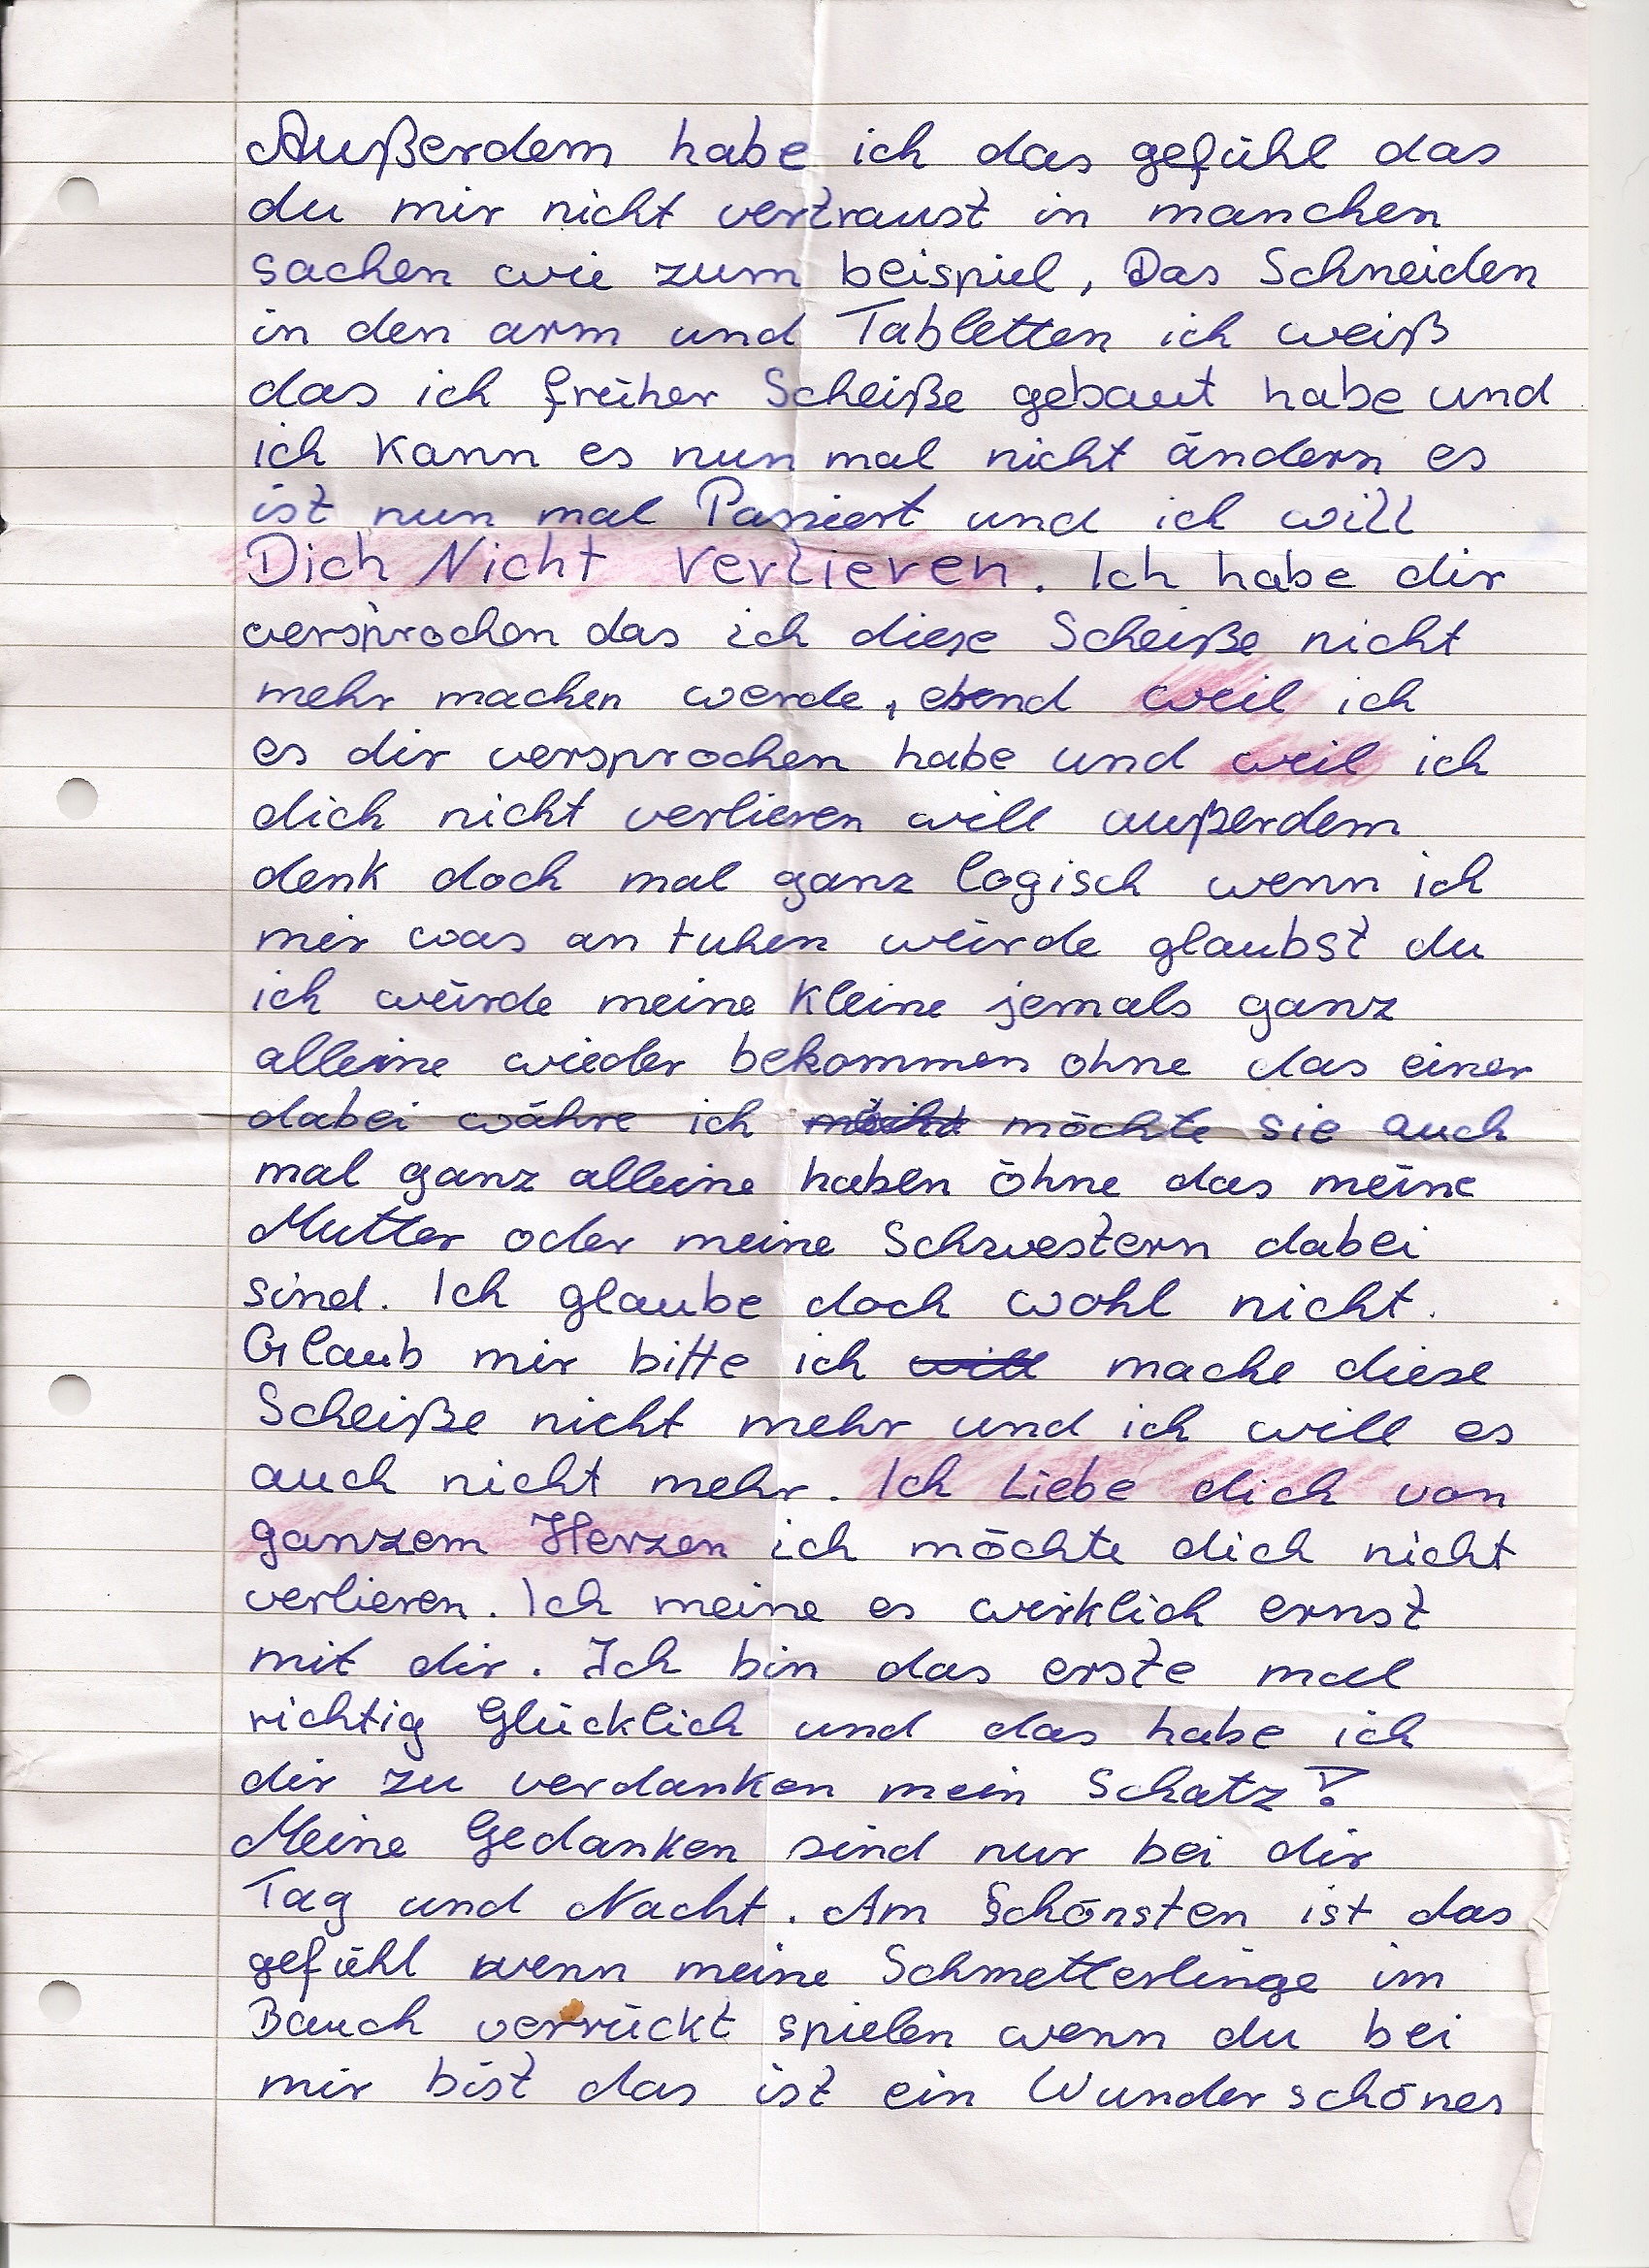 Außerdem habe ich das gefühl das
du mir nicht vertraust in manchen
sachen wie zum beispiel, Das Schneiden
in den arm und Tabletten ich weiß
das ich früher Scheiße gebaut habe und
ich kann es nun mal nicht ändern es
ist nun mal Passiert und ich will
Dich Nicht Verlieren. Ich habe dir
versprochen das ich diese Scheiße nicht
mehr machen werde, ebend weil ich
es dir versprochen habe und weil ich
dich nicht verlieren will außerdem
denk doch mal ganz logisch wenn ich
mir was an tuhen würde glaubst du
ich würde meine kleine jemals ganz
alleine wieder bekommen ohne das einer
dabei währe ich möchte sie auch
mal ganz alleine haben öhne das meine
Mutter oder meine Schwestern dabei
sind. Ich glaube doch wohl nicht.
Glaub mir bitte ich will mache diese
Scheiße nicht mehr und ich will es
auch nicht mehr. Ich Liebe dich von
ganzem Herzen ich möchte dich nicht
verlieren. Ich meine es wirklich ernst
mit dir. Ich bin das erste mal
richtig Glücklich und das habe ich
dir zu verdanken mein Schatz!
Meine Gedanken sind nur bei dir
Tag und Nacht. Am Schönsten ist das
gefühl wenn meine Schmetterlinge im
Bauch verrückt spielen wenn du bei
mir bist das ist ein Wunderschönes